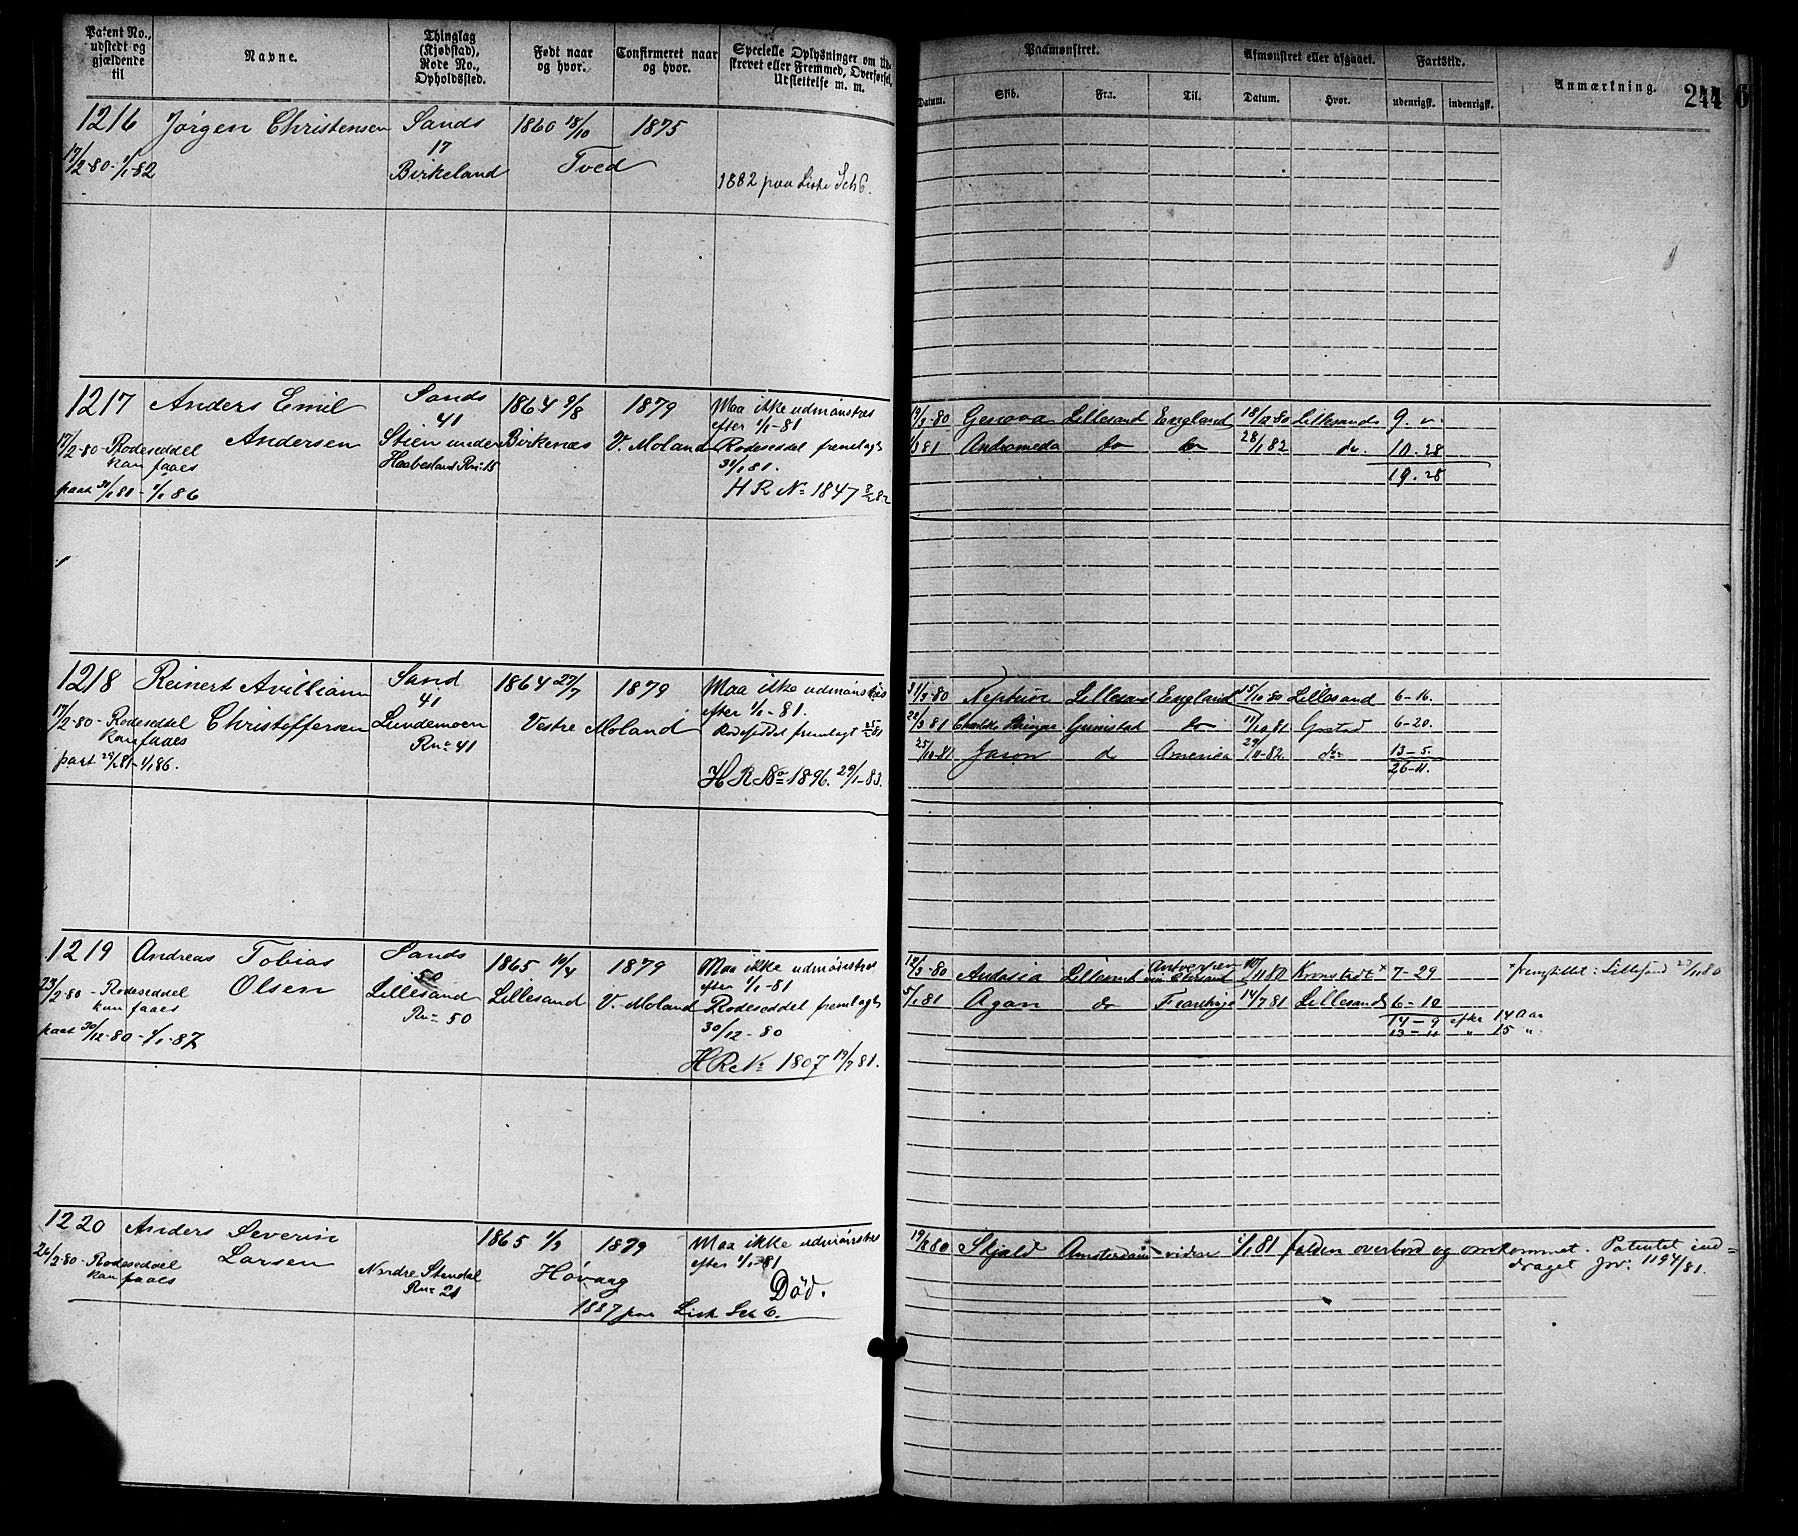 Patent No., udstedt og gjældende til
Navne.
Thinglag (Kjøbstad), Rode No., Opholdssted.
Født naar og hvor.
Confirmeret naar og hvor.
Specielle Oplysninger om Ud-
skrevet eller Fremmed, Overførsel,
Udslettelse m. m.
Paamønstret.
Afmønstret eller afgaaet.
Fartstid.
Anmærkning.
244
6
Datum.
Skib.
Fra.
Til.
Datum.
Hvor.
udenrigsk.
indenrigsk.
1216 Jørgen Christensen Sands 1860 18/10 1875
17
17/2-80-1/1-82 Birkeland Tved
1882 paa Liste Sch 6.
1217 Anders Emil Sands 1864 9/8 1879 Maa ikke udmønstres
41 efter 1/1-81
17/2-80-Rodeseddel Andersen Stien under Birkenæs V. Moland Rodeseddel fremlagt
kan faaes Haabesland Rno 15
paat 31/1 81-1/1 86 H R No 1847
19/3-80 Genova Lillesand England 18/12 80 Lillesands 9. "
Andromeda do do 28/1 82 do. 10.28
19.28
1218 Reinert Avilliann Sand 1864 27/7 1879 Maa ikke udmønstres
41 efter 1/1-81.
17/2-80-Rodeseddel Christoffersen Lundemoen Vestre Moland
kan faaes Rno 41
H R No 1896. 29/1-83.
31/3-80 Neptun Lillesand England Lillesand 6-16.
22/3 81 Grimstad do 17/10 81 Grstad 6-20.
25/10-81 Jason do America 29/11-82. do 13-5.
26-11.
1219 Andreas Tobias Sands 1865 10/4 1879 Maa ikke udmønstres
50 efter 1/1-81
23/2-80-Rodeseddel Olsen Lillesand Lillesand V. Moland Rodeseddel fremlagt
kan faaes Rno 50 30/12-80
paat 30/12-80-1/1-87 H R No 1807 19/7 81.
12/3-80 Lillesand Antwerpen Kronstadt x 7-29
5/1 81 Agan do 14/7 81 Lillesands 6-10
14-9 efter 14 Aar
13-11 " 15 "
1220 Anders Severin 1865 1/3 1879 Maa ikke udmønstres
efter 1/1-81
26/2-80-Rodeseddel Larsen Nordre Stendal Høvaag
kan faaes Rno 21 Død.
1887 paa List Sch 6.
Skjold Amsterdam viden 1/1 81 falden overbord og omkommet. Patentet ind-
draget Jvr: 1194/81.